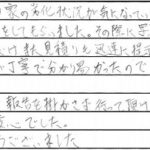 家の劣化状況が気になってい
をしてもらいました。その際に
け又見積りも迅速に提示
丁寧で分かり易かったので
報告を掛かさず行って頂け
安心でした。
うございました